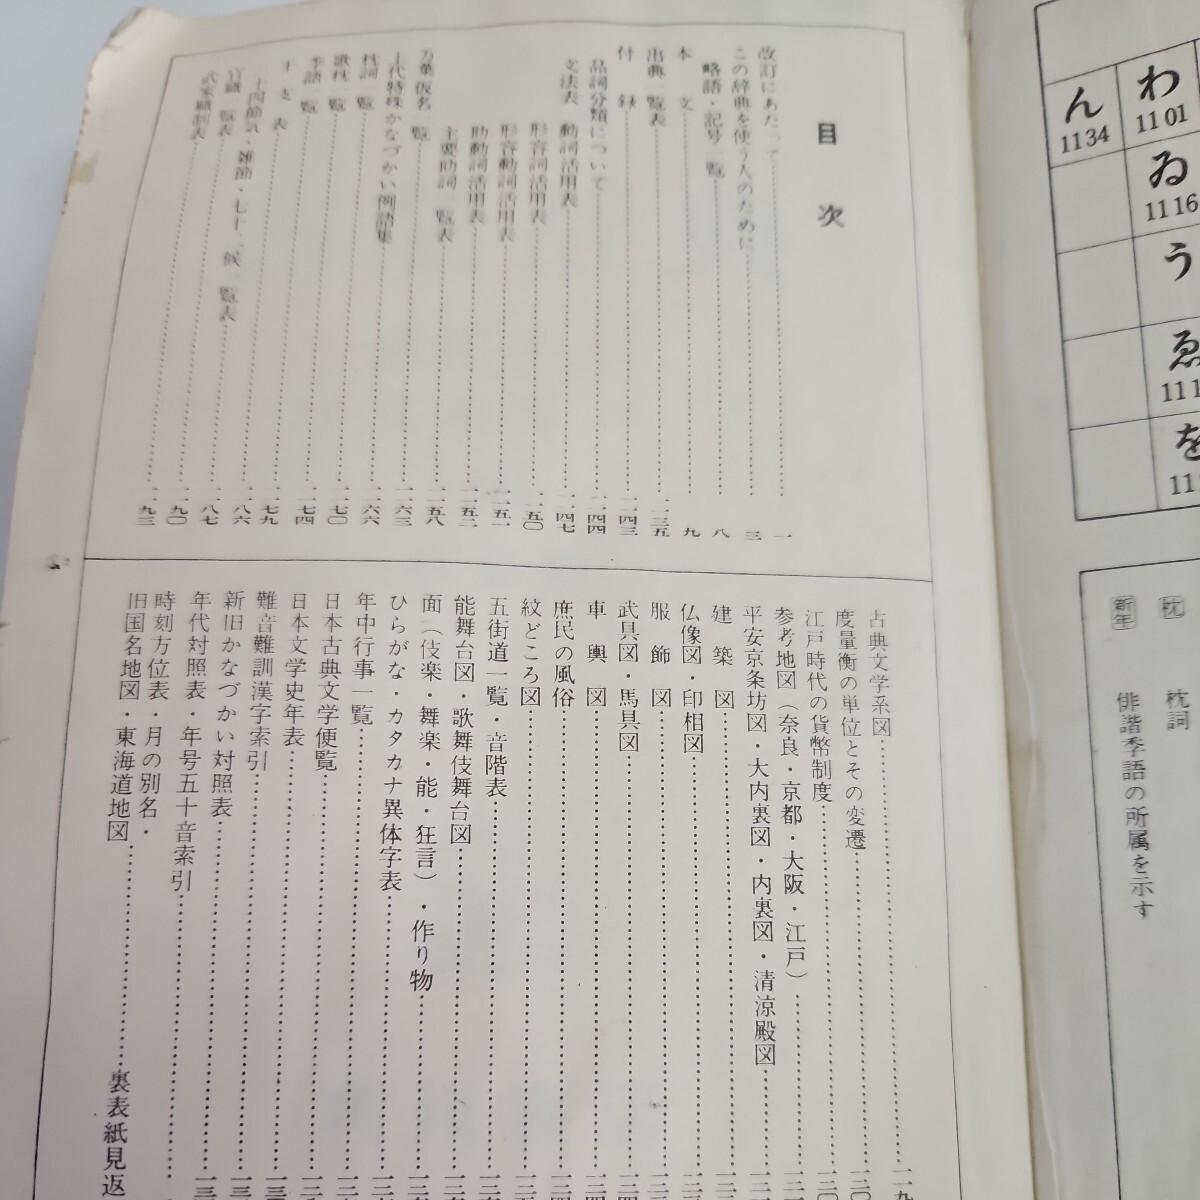 目次
改訂にあたって……一
この辞典を使う人のために……三
略語・記号一覧……八
本文……九
出典一覧表……一一三五
付録……一一四三
品詞分類について……一一四四
文法表 動詞活用表……一一四七
形容詞活用表……一一五〇
形容動詞活用表……一一五一
助動詞活用表……一一五二
主要助詞一覧表……一一五八
万葉仮名一覧……一一六三
上代特殊かなづかい例語集……一一六六
枕詞一覧……一一七〇
歌枕一覧……一一七四
季語一覧……一一七九
干支表……一一八六
二十四節気・雑節・七十二候一覧表……一一八七
官職一覧表……一一九〇
武家職制表……一一九三
古典文学系図
度量衡の単位とその変遷
江戸時代の貨幣制度
参考地図(奈良・京都・大阪・江戸)
平安京条坊図・大内裏図・内裏図・清涼殿図
建築図
仏像図・印相図
服飾図
武具図・馬具図
車輿図
庶民の風俗
紋どころ図
五街道一覧・音階表
能舞台図・歌舞伎舞台図
面(伎楽・舞楽・能・狂言)・作り物
ひらがな・カタカナ異体字表
年中行事一覧
日本古典文学便覧
日本文学史年表
難音難訓漢字索引
新旧かなづかい対照表
年代対照表・年号五十音索引
時刻方位表・月の別名・
旧国名地図・東海道地図……裏表紙見返
ん
1134
わ
1101
ゐ
1116
う
ゑ
を
枕 枕詞
新年 俳諧季語の所属を示す